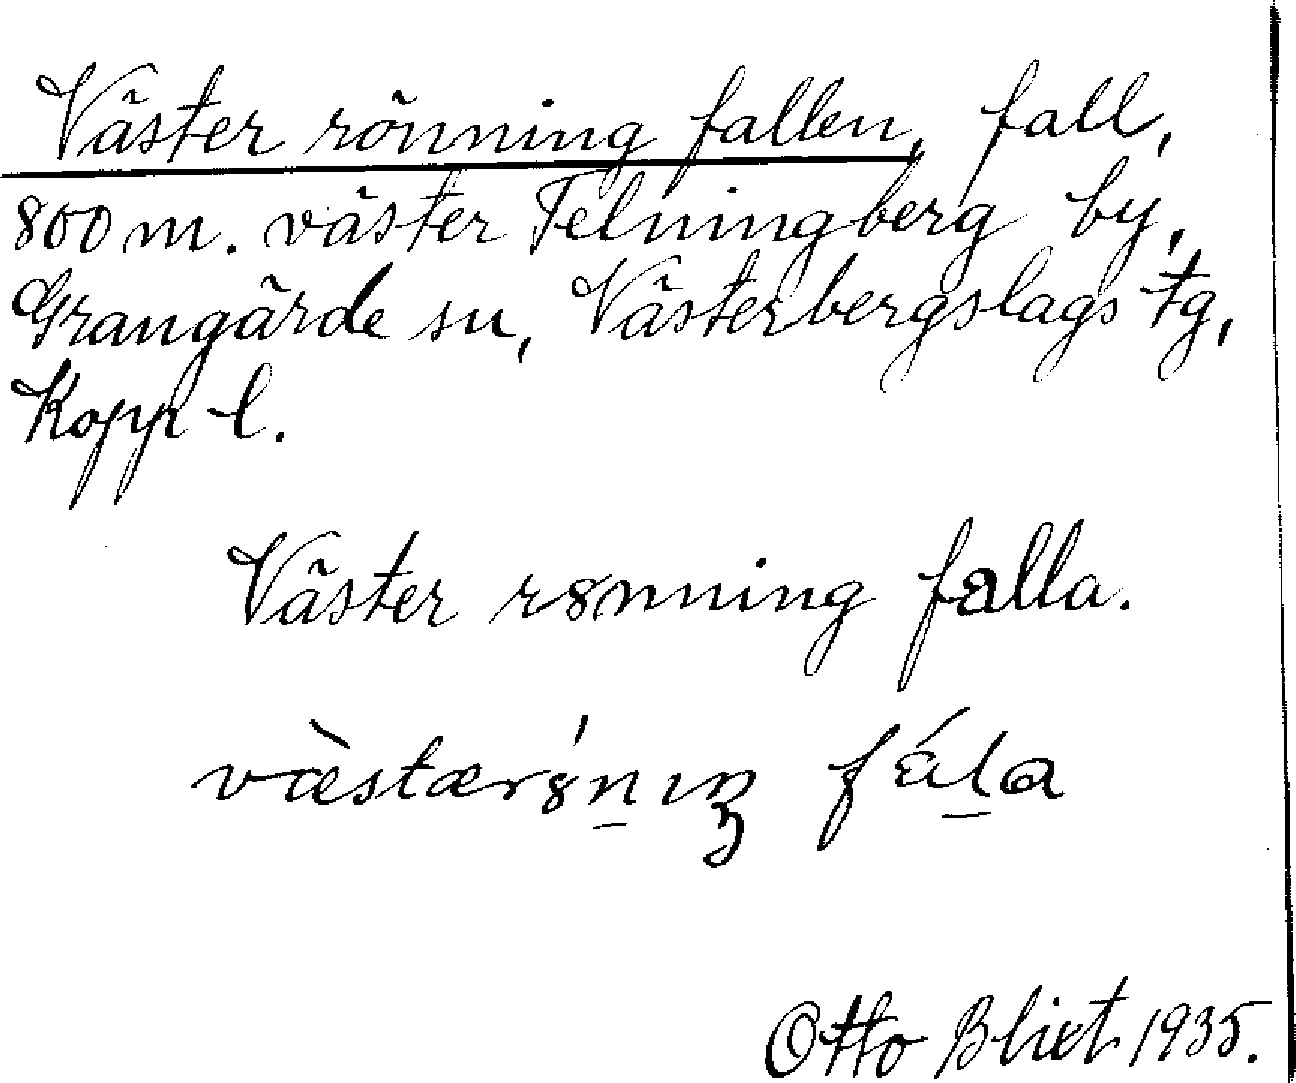 Väster rönning fallen, fall,
800 m. väster Telningberg by,
Grangärde sn, Västerbergslags tg,
Kopp l.
Väster r8nning falla.
vàstær8́n̲ıŋ fál̲a
Otto Blixt 1935.